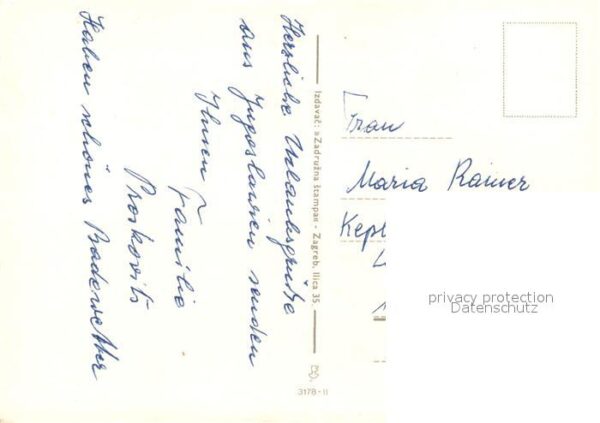 Herzliche Urlaubsgrüße
aus Jugoslawien senden
Ihnen Familie
Proskovits
Haben schönes Badewetter
Izdavač: »Zadružna štampa« - Zagreb, Ilica 35
3178-II
Frau
Maria Rainer
Kepl
privacy protection
Datenschutz